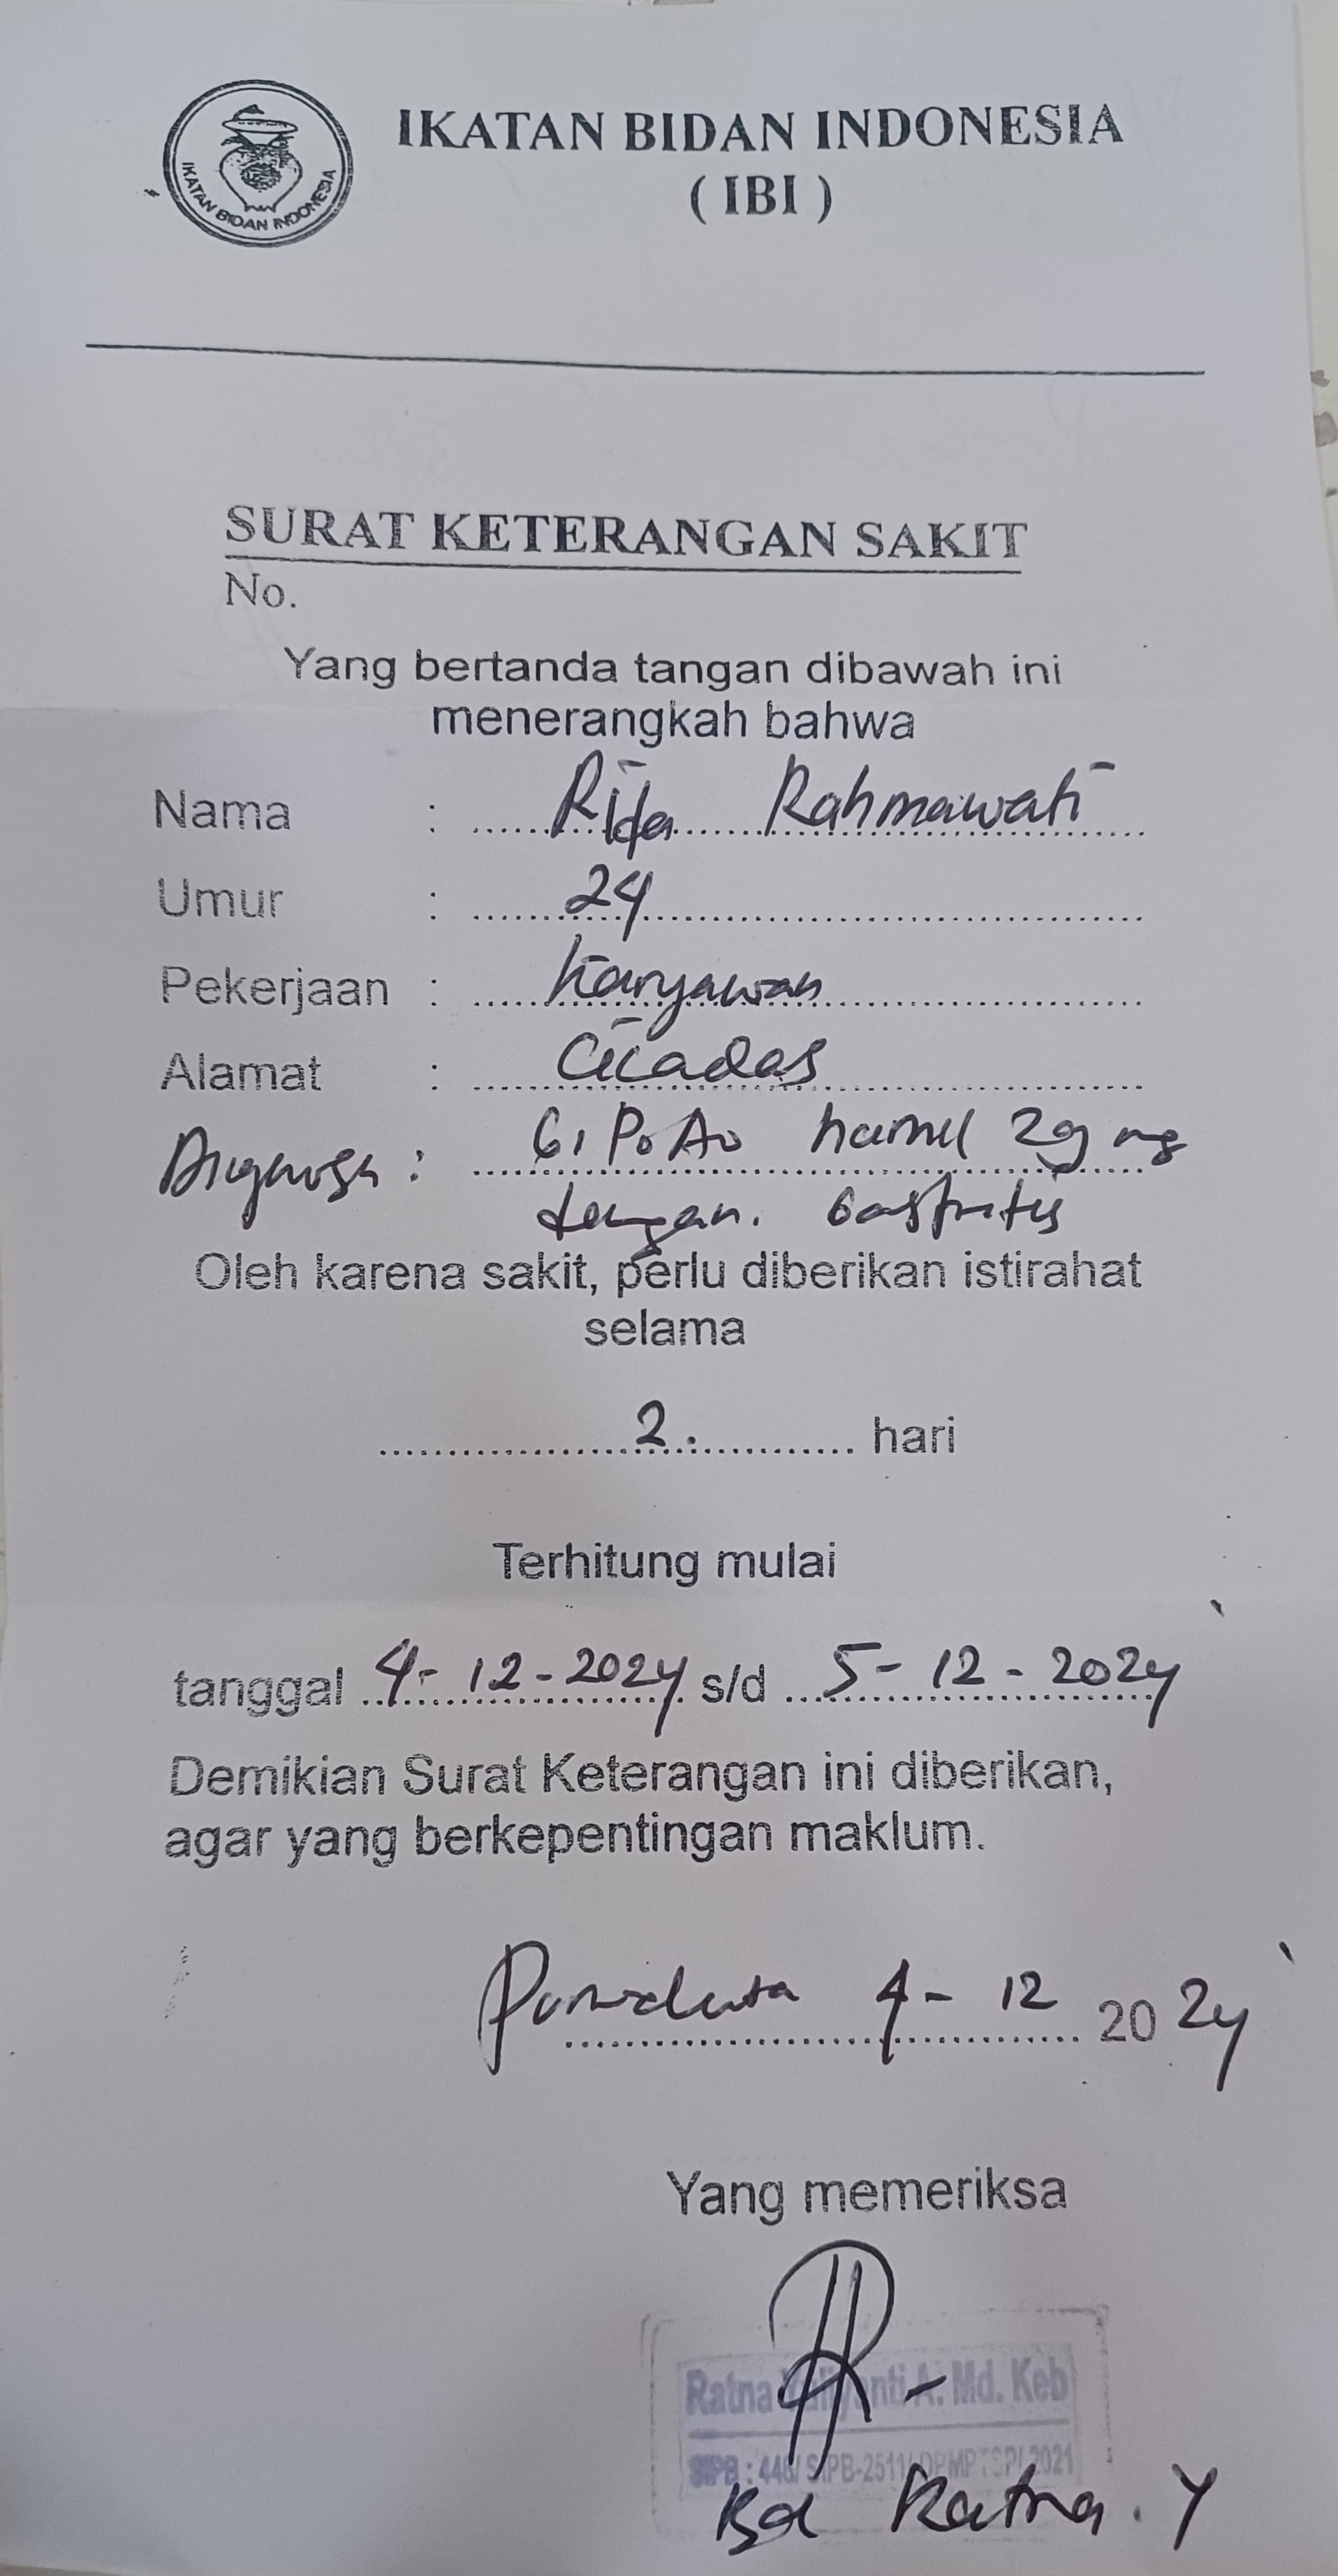 IKATAN BIDAN INDONESIA
IKATAN BIDAN INDONESIA
( IBI )
SURAT KETERANGAN SAKIT
No.
Yang bertanda tangan dibawah ini
menerangkah bahwa
Nama : Rida Rahmawati
Umur : 24
Pekerjaan : Karyawan
Alamat : Cicadas
Diagnosa : G1 P0 A0 hamil 29 mg
dengan. Gastritis
Oleh karena sakit, perlu diberikan istirahat
selama
2. hari
Terhitung mulai
tanggal 4-12-2024 s/d 5-12-2024
Demikian Surat Keterangan ini diberikan,
agar yang berkepentingan maklum.
4-12 2024
Yang memeriksa
Ratna A. Md. Keb
SIPB : 446/ SIPB-2511/ DPMPTSP/ 2021
Bd Ratna. Y